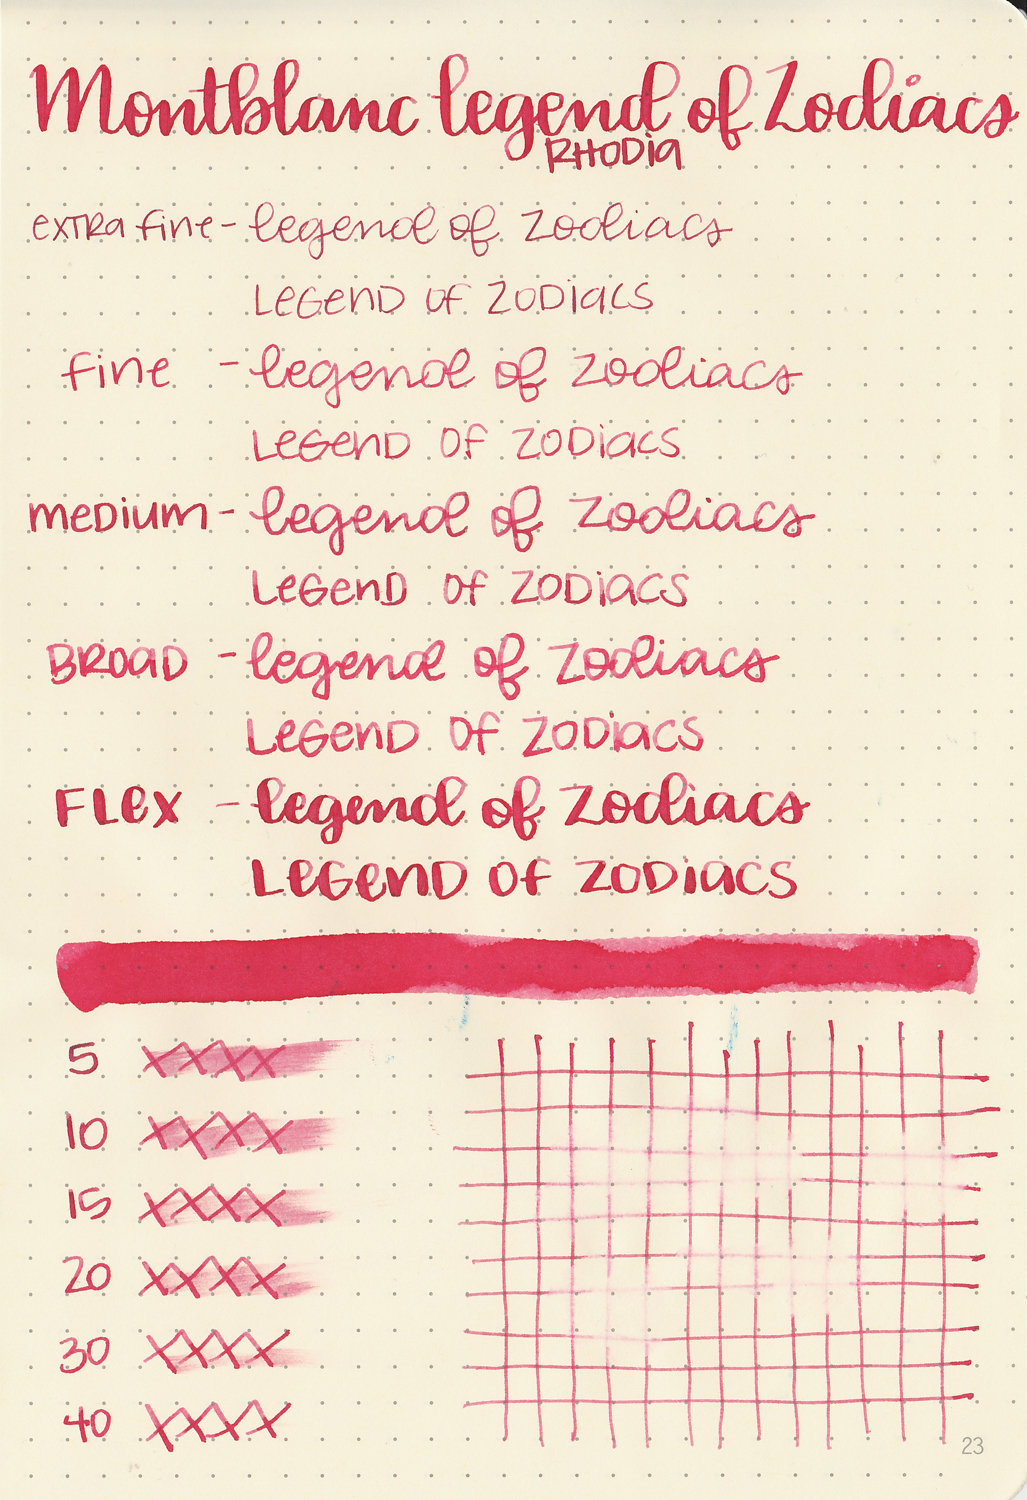 Montblanc legend of Zodiacs
RHODIA
extra fine - legend of Zodiacs
LEGEND OF ZODIACS
fine - legend of Zodiacs
LEGEND OF ZODIACS
MEDIUM - legend of Zodiacs
LEGEND OF ZODIACS
BROAD - legend of Zodiacs
LEGEND OF ZODIACS
FLEX - legend of Zodiacs
LEGEND OF ZODIACS
5 XXXX
10 XXXX
15 XXXX
20 XXXX
30 XXXX
40 XXXX
23